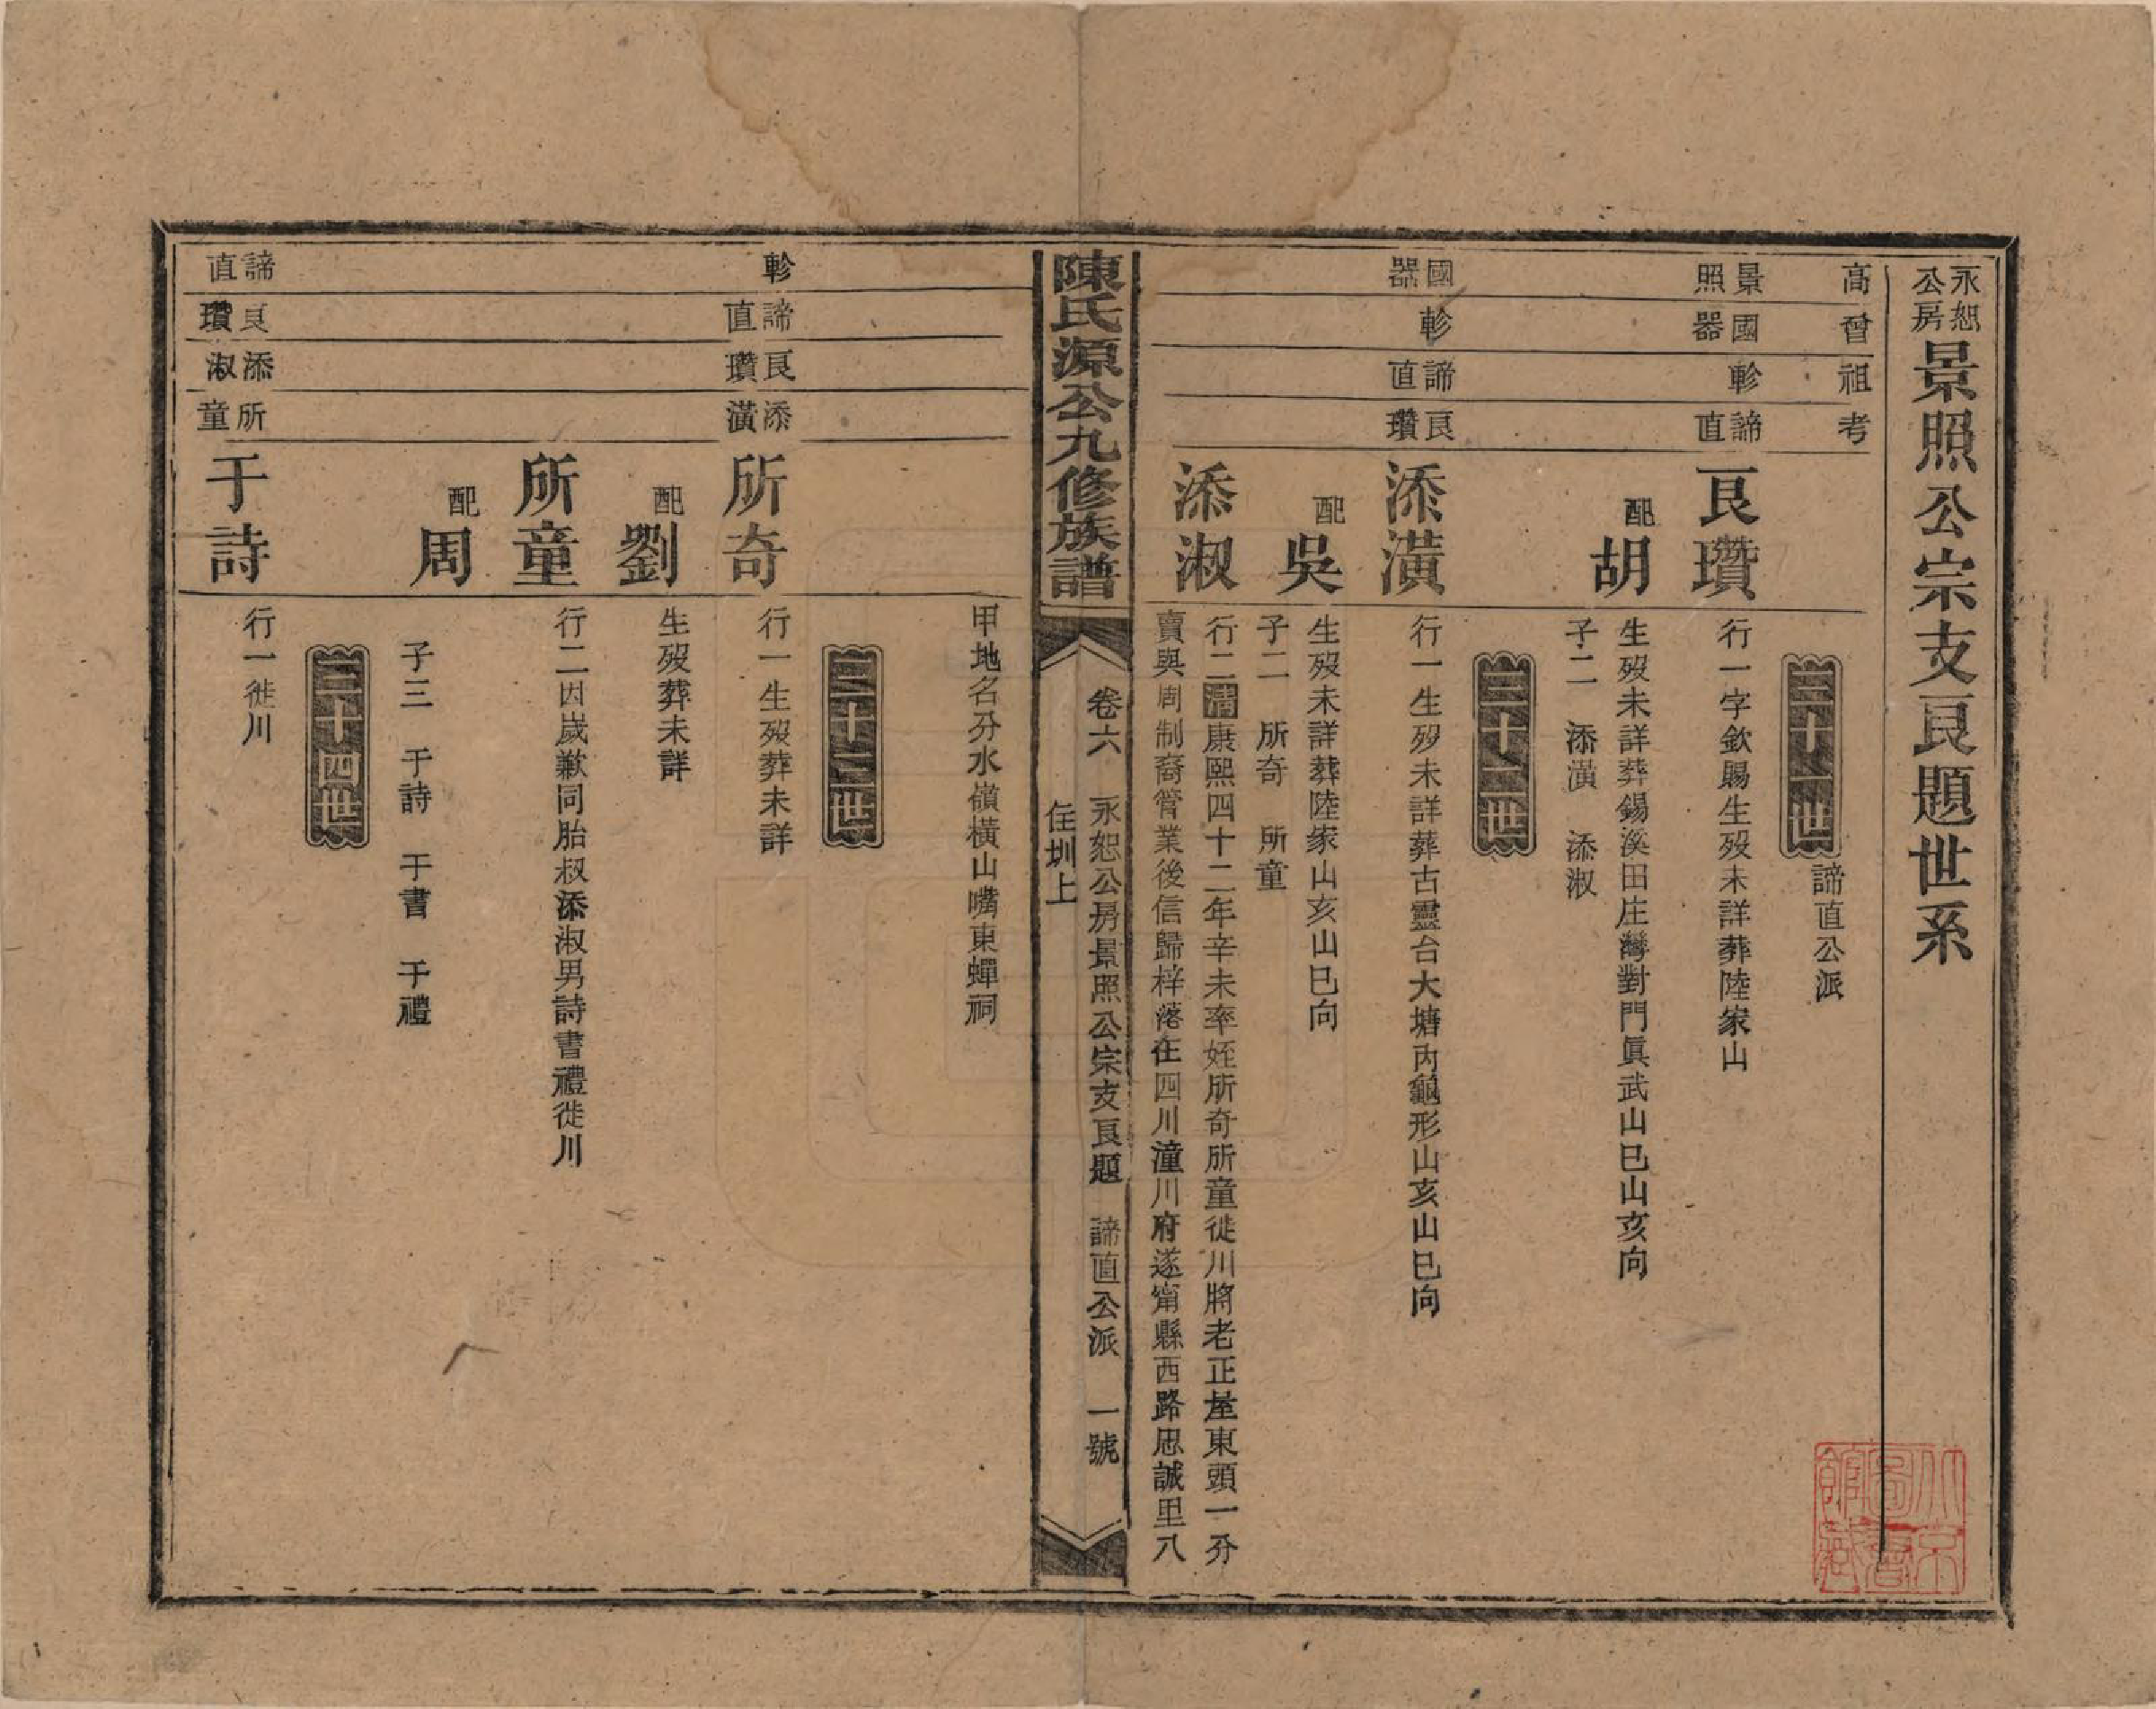 永恕公房景照公宗支良題世系
高 曾 祖 考
三十一世 諦直公派
景照 國器 軫 諦直
良瓚
行一字欽賜生歿未詳葬陸家山
配胡
生歿未詳葬錫溪田庄灣對門眞武山巳山亥向
子二 添潢 添淑
三十二世
國器 軫 諦直 良瓚
添潢
行一生歿未詳葬古靈台大塘內龜形山亥山巳向
配吳
生歿未詳葬陸家山亥山巳向
子二 所奇 所童
添淑
行二清康熙四十二年辛未率姪所奇所童徙川將老正屋東頭一分
賣與周制裔管業後信歸梓落在四川潼川府遂甯縣西路思誠里八
陳氏源公九修族譜
卷六 永恕公房景照公宗支良題 諦直公派 一號
住圳上
甲地名分水嶺橫山嘴東蟬祠
三十三世
軫 諦直 良瓚 添潢
所奇
行一生歿葬未詳
配劉
生歿葬未詳
所童
行二因歲歉同胎叔添淑男詩書禮徙川
配周
子三 于詩 于書 于禮
三十四世
諦直 良瓚 添淑 所童
于詩
行一徙川